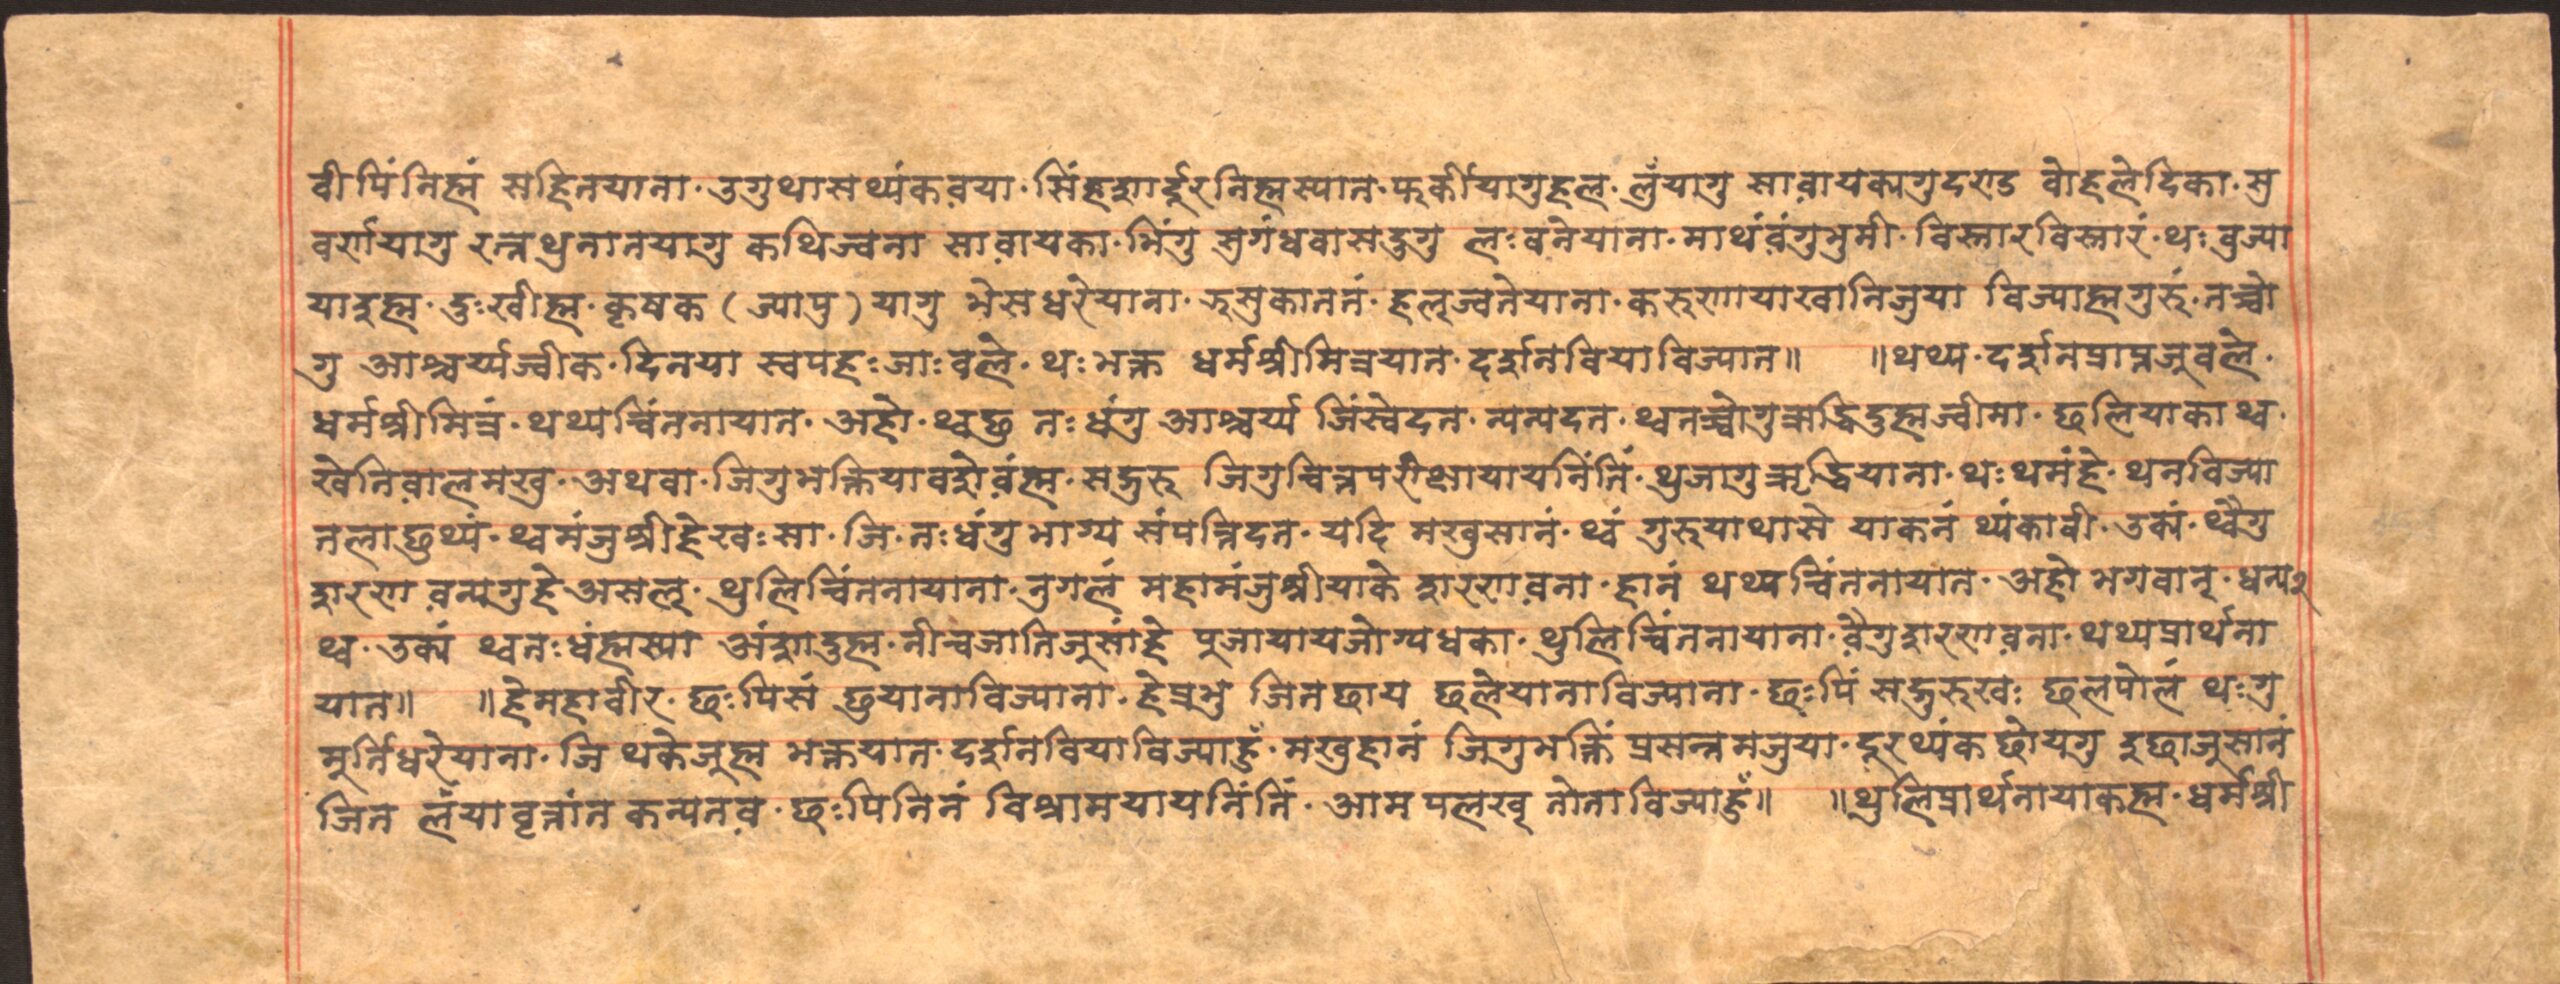 वीपिंनिह्मं सहिनयाना·उगुथासथ्यंकव़या·सिंहशार्दूरनिह्मस्यान·फर्कीयागुहल·लुँयागु साव़ायक्यगुदण्ड वोहलेदिका·सु
वर्णयागु रत्नथुनातयागु कथिज्वना साव़ायका·भिंगु सुगंधवासदुगु लःवनेयाना·माथंव़ंगुभुमी·विस्तारविस्तारं·थःवुज्या
यादुह्म·दुःखीह्म·कृषक (ज्यापु) यागु भेसधरेयाना·झसुकाननं·हलज्वनेयाना·करुणायाखानिजुया विज्याह्मगुरुं·नज्वो
गु आश्चर्य्यज्वीक·दिनया स्वपहःजाःवले·थःभक्त धर्मश्रीमित्रयात·दर्शनवियाविज्यात॥ ॥थथ्य·दर्शनप्राप्तजूवले·
धर्मश्रीमित्रं·थथ्यचिंतनायात·अहो·थ्वछु नःधंगु आश्चर्य्य जिंस्वेदन·न्यन्यदन·थ्वनज्वोगुऋद्धिदुह्मज्वीमा·छलियाकाथ्व·
खेनिव़ालमखु·अथवा·जिगुभक्तियावशेव़ंह्म·सद्गुरु जिगुचित्तपरीक्षायायनिंतिं·थुजागुऋद्धियाना·थःथमंहे·थनविज्या
तलाछुथ्यं·थ्वमंजुश्रीहेखःसा·जि·नःधंगुभाग्य संपत्तिदत·यदि मखुसानं·थ्वं गुरुयाथासे याकनं थ्यंकावी·उक्यं·थ्वैगु
शरण व़न्यगुहेअसल·थुलिचिंतनायाना·नुगलं महामंजुश्रीयाके शरणव़ना·हानं थथ्यचिंतनायात·अहो भगवान्·धन्य२
थ्व·उक्यं थ्वनःधंह्मस्या अंशदुह्म·नीचजातिजुसांहे पुजायायजोग्यधका·थुलिचिंतनायाना·व़ैगुशरणव़ना·थथ्यप्रार्थना
यात॥ ॥हेमहावीर·छःपिसं छुयानाविज्याना·हेप्रभु जितछाय छलेयानाविज्याना·छःपिं सद्गुरुखः छलपोलं थःगु
मुर्तिधरेयाना·जि थकेजूह्म भक्तयात·दर्शनवियाविज्याहुँ·मखुहानं जिगुभक्तिं प्रसन्नमजुया·दूरथ्यंक छोयगु इछाजुसानं
जित लँयावृत्तांत कन्यतव़·छःपिनिनं विश्रामयायनिंतिं·आमपलखू तोताविज्याहुँ॥ ॥थुलिप्रार्थनायाकह्म·धर्मश्री